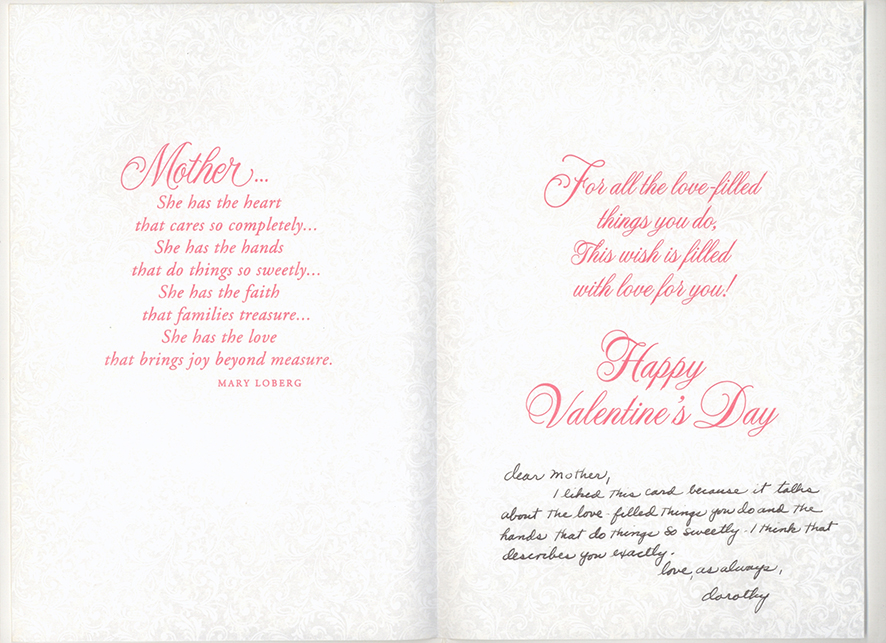 Mother...
She has the heart
that cares so completely...
She has the hands
that do things so sweetly...
She has the faith
that families treasure...
She has the love
that brings joy beyond measure.
MARY LOBERG
For all the love-filled
things you do,
This wish is filled
with love for you!
Happy
Valentine's Day
dear mother,
I liked this card because it talks
about the love-filled things you do and the
hands that do things so sweetly. I think that
describes you exactly.
love, as always,
dorothy